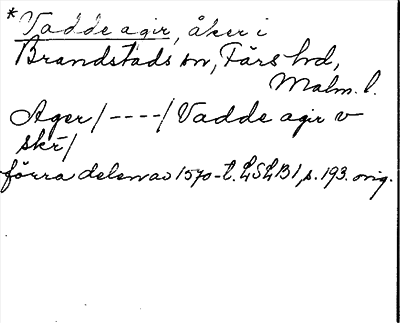 *Vadde agir, åker i
Brandstads sn, Färs hd,
Malm. l.
Ager/----/Vadde agir v
skr/
förra delen av 1570-t. LSLB1, s. 193. orig.